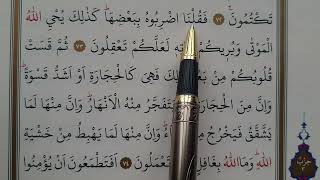 تَكْتُمُونَ ﴿٧٢﴾ فَقُلْنَا اضْرِبُوهُ بِبَعْضِهَا كَذَلِكَ يُحْيِ اللّٰهُ
الْمَوْتٰى وَيُرِيكُمْ لَعَلَّكُمْ تَعْقِلُونَ ﴿٧٣﴾ ثُمَّ قَسَتْ
قُلُوبُكُمْ مِنْ ذٰلِكَ فَهِيَ كَالْحِجَارَةِ اَوْ اَشَدُّ قَسْوَةً
وَاِنَّ مِنَ الْحِجَارَةِ يَتَفَجَّرُ مِنْهُ الْاَنْهَارُ وَاِنَّ مِنْهَا لَمَا
يَشَّقَّقُ فَيَخْرُجُ مِنْهُ وَاِنَّ مِنْهَا لَمَا يَهْبِطُ مِنْ خَشْيَةِ
اللّٰهِ وَمَا اللّٰهُ بِغَافِلٍ تَعْمَلُونَ ﴿٧٤﴾ اَفَتَطْمَعُونَ اَنْ يُؤْمِنُوا